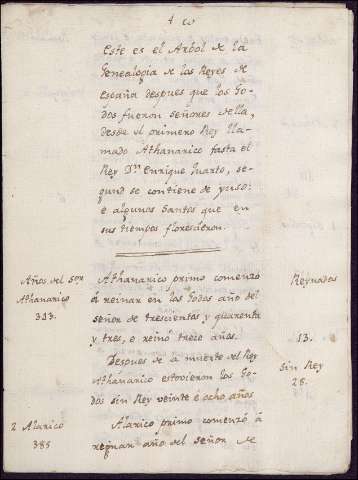 Este es el Arbol de la
Genealogia de los Reyes de
España despues que los Go-
dos fueron señores della,
desde el primero Rey lla-
mado Athanarico fasta el
Rey Dn Enrique Quarto, se-
gund se contiene de yuso:
e algunos Santos que en
sus tiempos florescieron.
Años del Sor
Athanarico
343.
Athanarico primo comenzó
á reinar en los Godos año del
señor de trescientas y quarenta
y tres, e reinó trece años.
Reynados
13.
Despues de la muerte del Rey
Athanarico estovieron los Go-
dos sin Rey veinte e ocho años
Sin Rey
28.
2 Alarico
385
Alarico primo comenzó á
reignar año del señor de